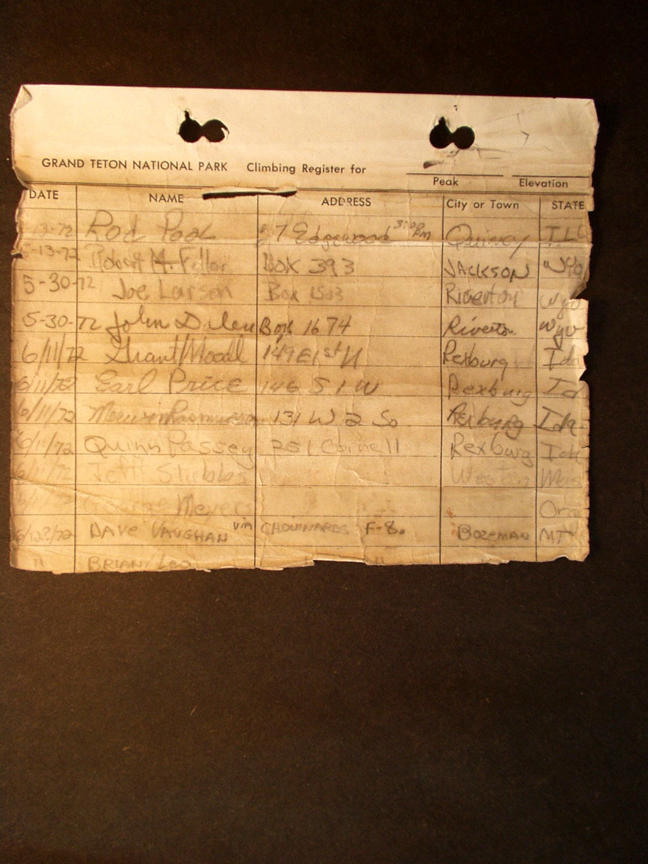 GRAND TETON NATIONAL PARK Climbing Register for
Peak Elevation
DATE NAME ADDRESS City or Town STATE
-13-72 Rod Pool 7 Edgewood 3:00 PM Quincy ILL
-13-72 Robert M. Box 393 JACKSON Wyo
5-30-72 Joe Larson Box Riverton Wyo
5-30-72 John Box 1674 Riverton Wyo
6/11/72 Grant 149 E 1st N Rexburg Ida
6/11/72 Earl Price 146 S 1 W Rexburg Id
6/11/72 Rasmussen 131 W 2 So Rexburg Ida
6/11/72 Quinn Passey 251 Cornell Rexburg Ida
Stubbs
George Meyers
6/23/72 DAVE VAUGHAN via CHOUINARDS F-8. BOZEMAN MT
" BRIAN "